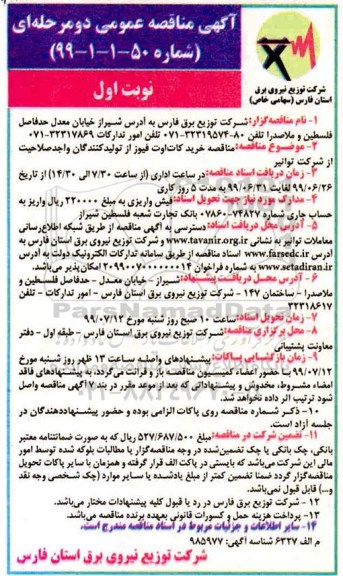 آگهی مناقصه عمومی دو مرحله‌ای
(شماره ۵۰-۱-۱-۹۹)
نوبت اول
شرکت توزیع نیروی برق
استان فارس (سهامی خاص)
۱- نام مناقصه‌گزار: شرکت توزیع برق فارس به آدرس شیراز خیابان معدل حدفاصل
فلسطین و ملاصدرا تلفن ۸۰-۳۲۳۱۹۵۷۴-۰۷۱ تلفن امور تدارکات ۳۲۳۱۷۸۶۹-۰۷۱
۲- موضوع مناقصه: مناقصه خرید کات‌اوت فیوز از تولیدکنندگان واجدصلاحیت
از شرکت توانیر
۳- زمان دریافت اسناد مناقصه: در ساعت اداری (از ساعت ۷/۳۰ الی ۱۴/۳۰) از تاریخ
۹۹/۰۶/۲۶ لغایت ۹۹/۰۶/۳۱ به مدت ۵ روز کاری
۴- مدارک مورد نیاز جهت تحویل اسناد: فیش واریزی به مبلغ ۲۲۰۰۰۰ ریال واریز به
حساب جاری شماره ۷۴۸۲۷-۰۷۸۶۰ بانک تجارت شعبه فلسطین شیراز
۵- آدرس محل دریافت اسناد: دسترسی به آگهی مناقصه از طریق شبکه اطلاع‌رسانی
معاملات توانیر به نشانی www.tavanir.org.ir و شرکت توزیع نیروی برق استان فارس به
آدرس www.farsedc.ir اسناد مناقصه از طریق سامانه تدارکات الکترونیک دولت به آدرس
www.setadiran.ir به شماره فراخوان ۲۰۹۹۰۰۷۰۰۰۰۰۰۰۱۴ امکان پذیر می‌باشد.
۶- آدرس محل دریافت پیشنهاد: شیراز - خیابان معدل - حدفاصل فلسطین و
ملاصدرا - ساختمان ۱۴۷ - شرکت توزیع نیروی برق استان فارس - امور تدارکات - تلفن
۳۲۳۱۸۶۱۷
۷- زمان تحویل اسناد: ساعت ۱۰ صبح روز شنبه مورخ ۹۹/۰۷/۱۲
۸- محل برگزاری مناقصه: شرکت توزیع نیروی برق استان فارس - طبقه اول - دفتر
معاونت پشتیبانی
۹- زمان بازگشایی پاکات: پیشنهادهای واصله ساعت ۱۳ ظهر روز شنبه مورخ
۹۹/۰۷/۱۲ با حضور اعضاء کمیسیون مناقصه باز و قرائت می‌گردد، به پیشنهادهای فاقد
امضاء مشروط، مخدوش و پیشنهاداتی که بعد از موعد مقرر در بند ۷ آگهی مناقصه واصل
شود ترتیب اثر داده نخواهد شد.
۱۰- ذکر شماره مناقصه روی پاکات الزامی بوده و حضور پیشنهاددهندگان در
جلسه آزاد است.
۱۱- تضمین شرکت در مناقصه: مبلغ ۵۲۷/۶۸۷/۵۰۰ ریال که به صورت ضمانتنامه معتبر
بانکی، چک بانکی یا چک تضمین‌شده در وجه مناقصه‌گزار یا مطالبات بلوکه شده توسط امور
مالی این شرکت می‌باشد که بایستی در پاکت الف قرار گرفته و همزمان با سایر پاکات تحویل
مناقصه‌گزار گردد ضمنا تضمین کمتر از مبلغ یادشده یا سایر موارد (چک شخصی وجه نقد
و...) قابل قبول نمی‌باشد.
۱۲- شرکت توزیع برق فارس در رد یا قبول کلیه پیشنهادات مختار می‌باشد.
۱۳- پرداخت هزینه حمل و کسورات قانونی بعهده برنده مناقصه می‌باشد.
۱۴- سایر اطلاعات و جزئیات مربوط در اسناد مناقصه مندرج است.
م الف ۶۳۲۷ شناسه آگهی: ۹۸۵۹۷۷
شرکت توزیع نیروی برق استان فارس